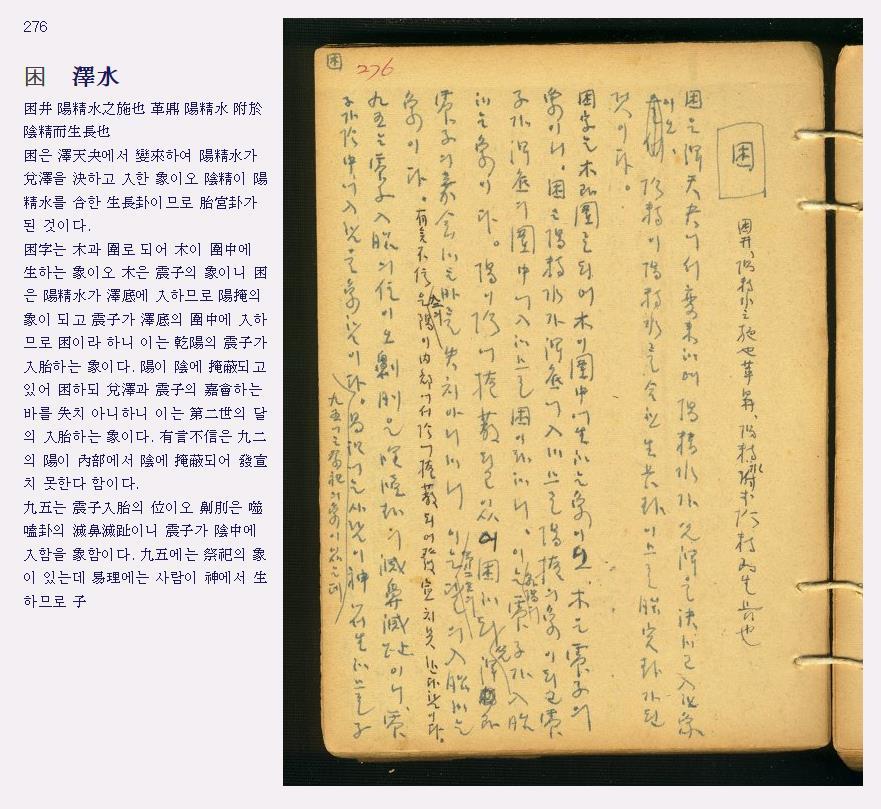 276
困 澤水
困井 陽精水之施也 革鼎 陽精水 附於
陰精而生長也
困은 澤天夬에서 變來하여 陽精水가
兌澤을 決하고 入한 象이오 陰精이 陽
精水를 含한 生長卦이므로 胎宮卦가
된 것이다.
困字는 木과 圍로 되어 木이 圍中에
生하는 象이오 木은 震子의 象이니 困
은 陽精水가 澤底에 入하므로 陽掩의
象이 되고 震子가 澤底의 圍中에 入하
므로 困이라 하니 이는 乾陽의 震子가
入胎하는 象이다. 陽이 陰에 掩蔽되고
있어 困하되 兌澤과 震子의 嘉會하는
바를 失치 아니하니 이는 第二世의 달
의 入胎하는 象이다. 有言不信은 九二
의 陽이 內部에서 陰에 掩蔽되어 發宣
치 못한다 함이다.
九五는 震子入胎의 位이오 劓刖은 噬
嗑卦의 滅鼻滅趾이니 震子가 陰中에
入함을 象함이다. 九五에는 祭祀의 象
이 있는데 易理에는 사람이 神에서 生
하므로 子
困
276
困
困井、陽精水之施也 革鼎、陽精水附於陰精而生長也
困은 澤天夬에서 變來하여 陽精水가 兌澤을 決하고 入한 象
이오, 陰精이 陽精水를 含한 生長卦이므로 胎宮卦가 된
것이다.
困字는 木과 圍로 되어 木이 圍中에 生하는 象이오 木은 震子의
象이니, 困은 陽精水가 澤底에 入하므로 陽掩의 象이 되고 震
子가 澤底의 圍中에 入하므로 困이라 하니, 이는 乾陽의 震子가 入胎
하는 象이다. 陽이 陰에 掩蔽되고 있어 困하되 兌澤과
震子의 嘉會하는 바를 失치 아니하니 이는 第二世의 달의 入胎하는
象이다. 有言不信은 九二의 陽이 內部에서 陰에 掩蔽되어 發宣치 못한다 함이다.
九五는 震子入胎의 位이오 劓刖은 噬嗑卦의 滅鼻滅趾이니, 震
子가 陰中에 入함을 象함이다. 九五에는 祭祀의 象이 있는데 易理에는 사람이 神에서 生하므로 子